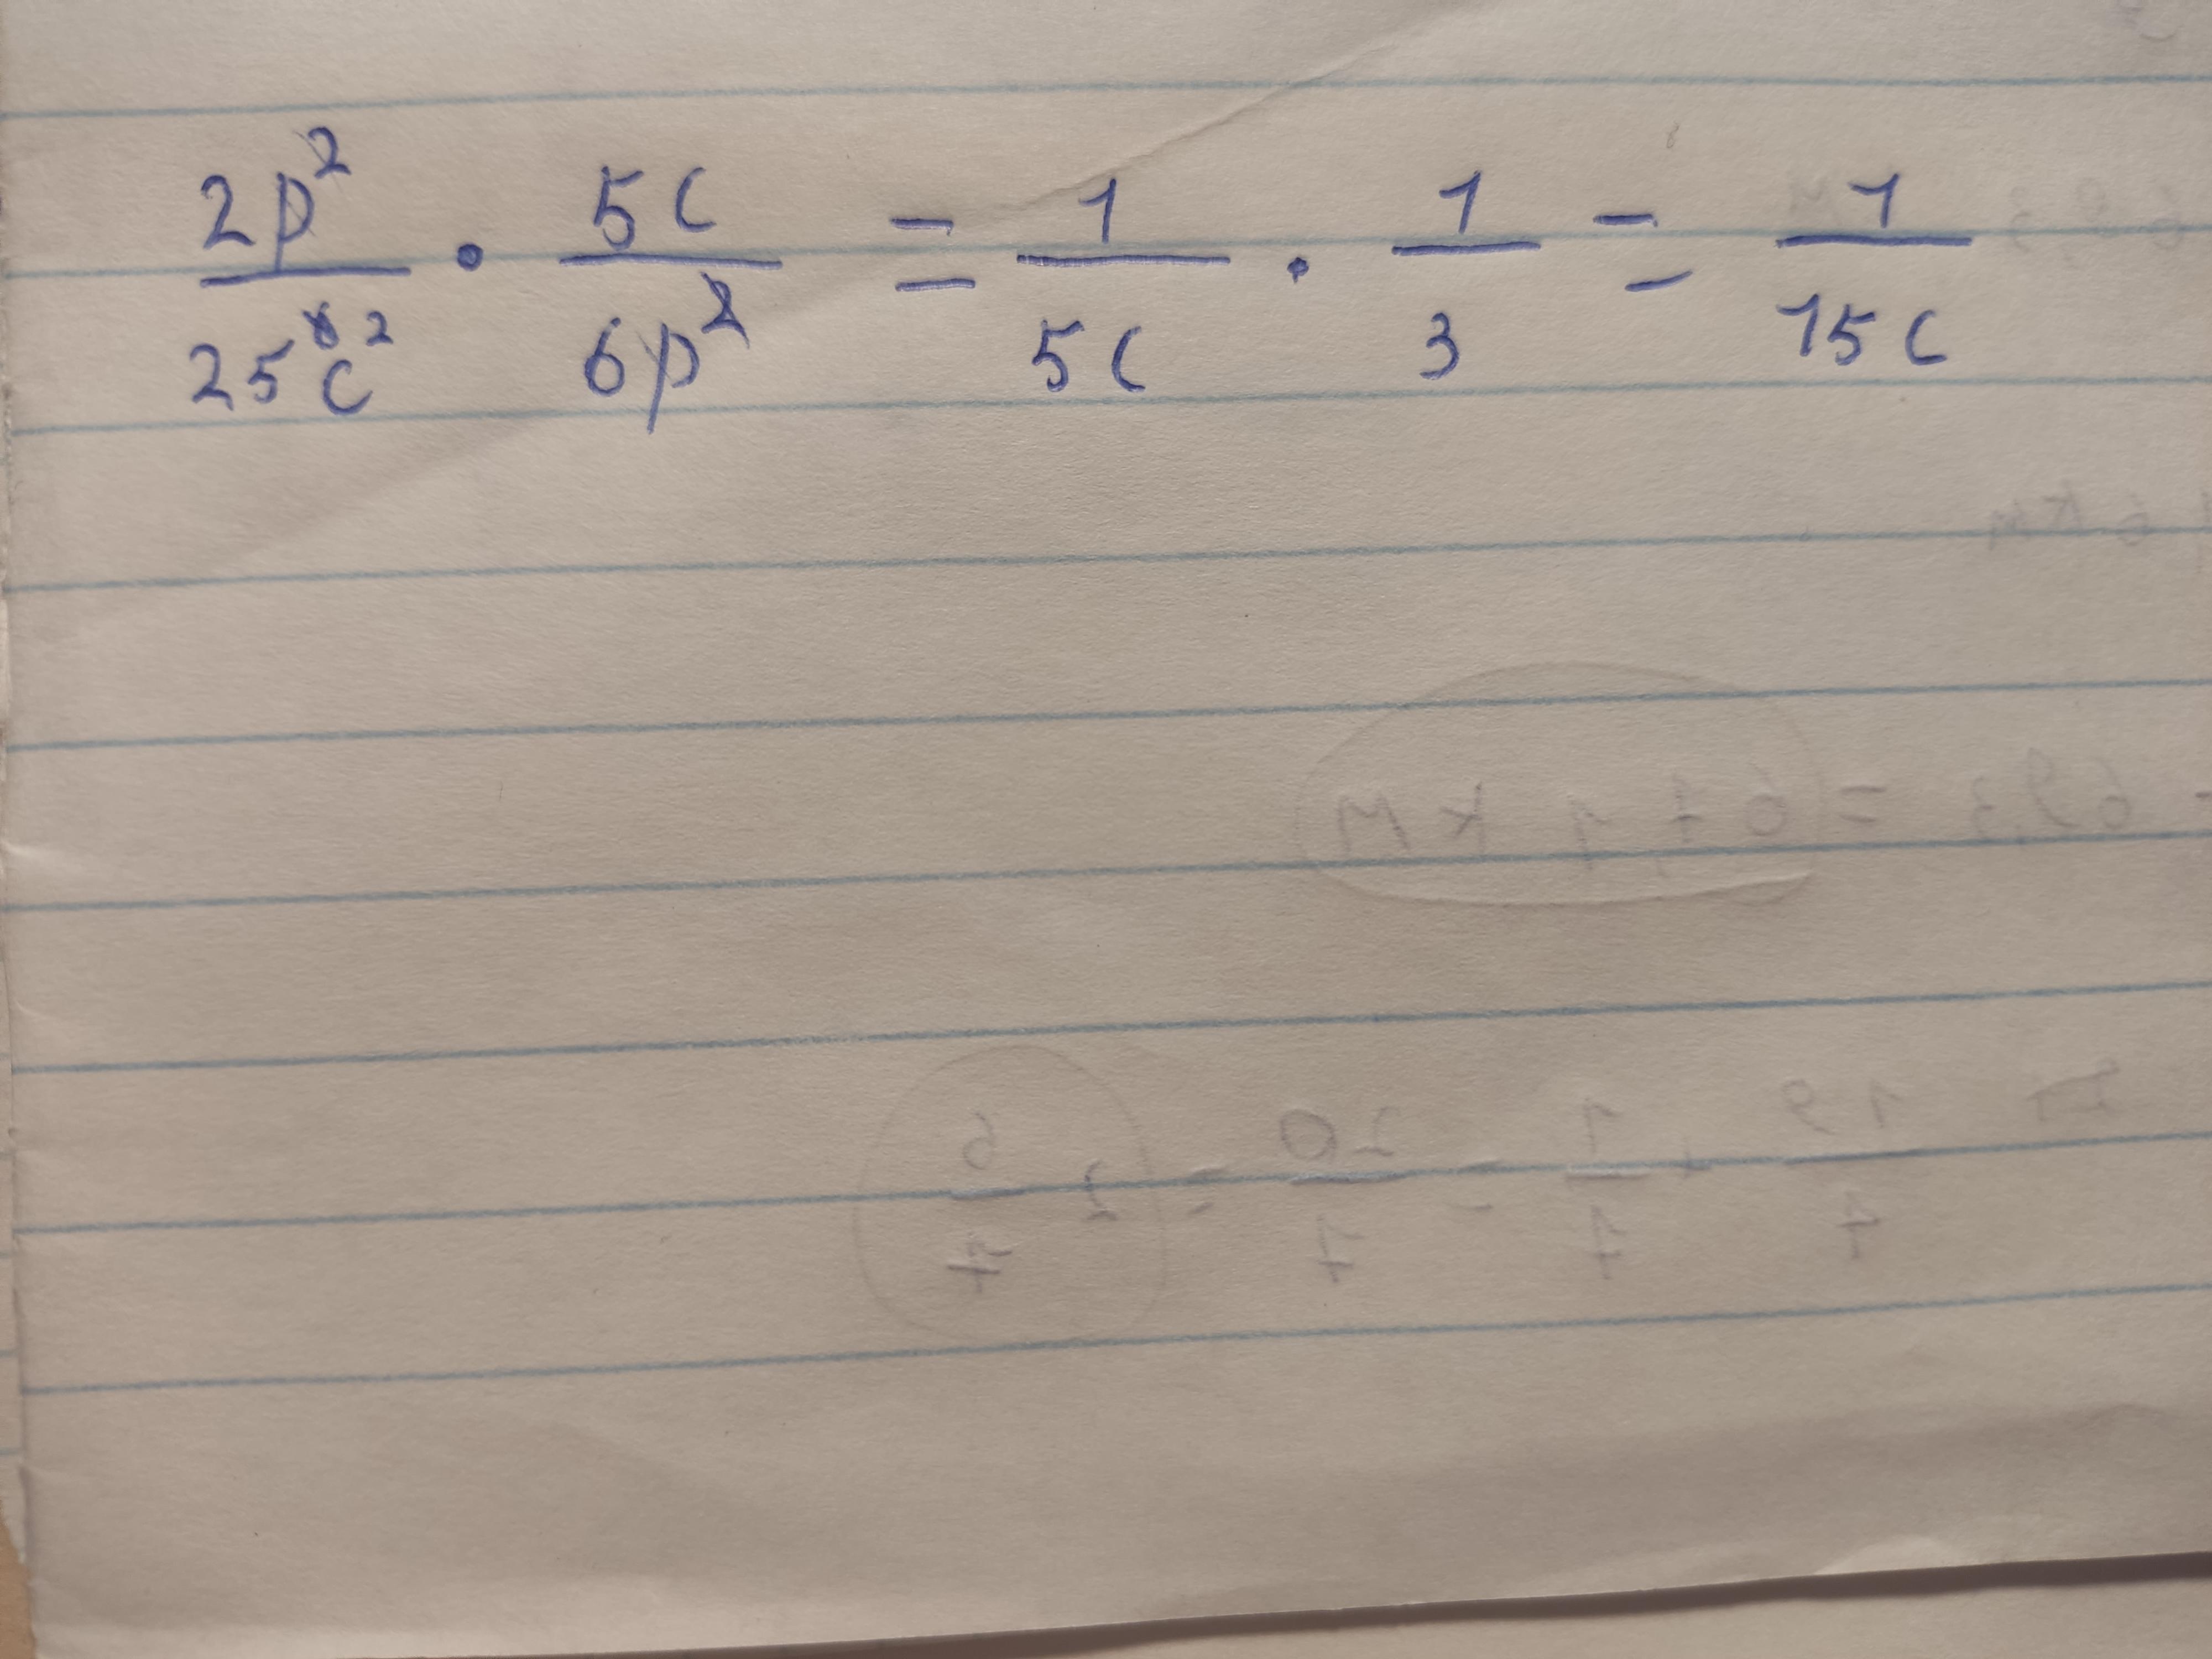 2p²/25c² · 5c/6p² = 1/5c · 1/3 = 1/15c